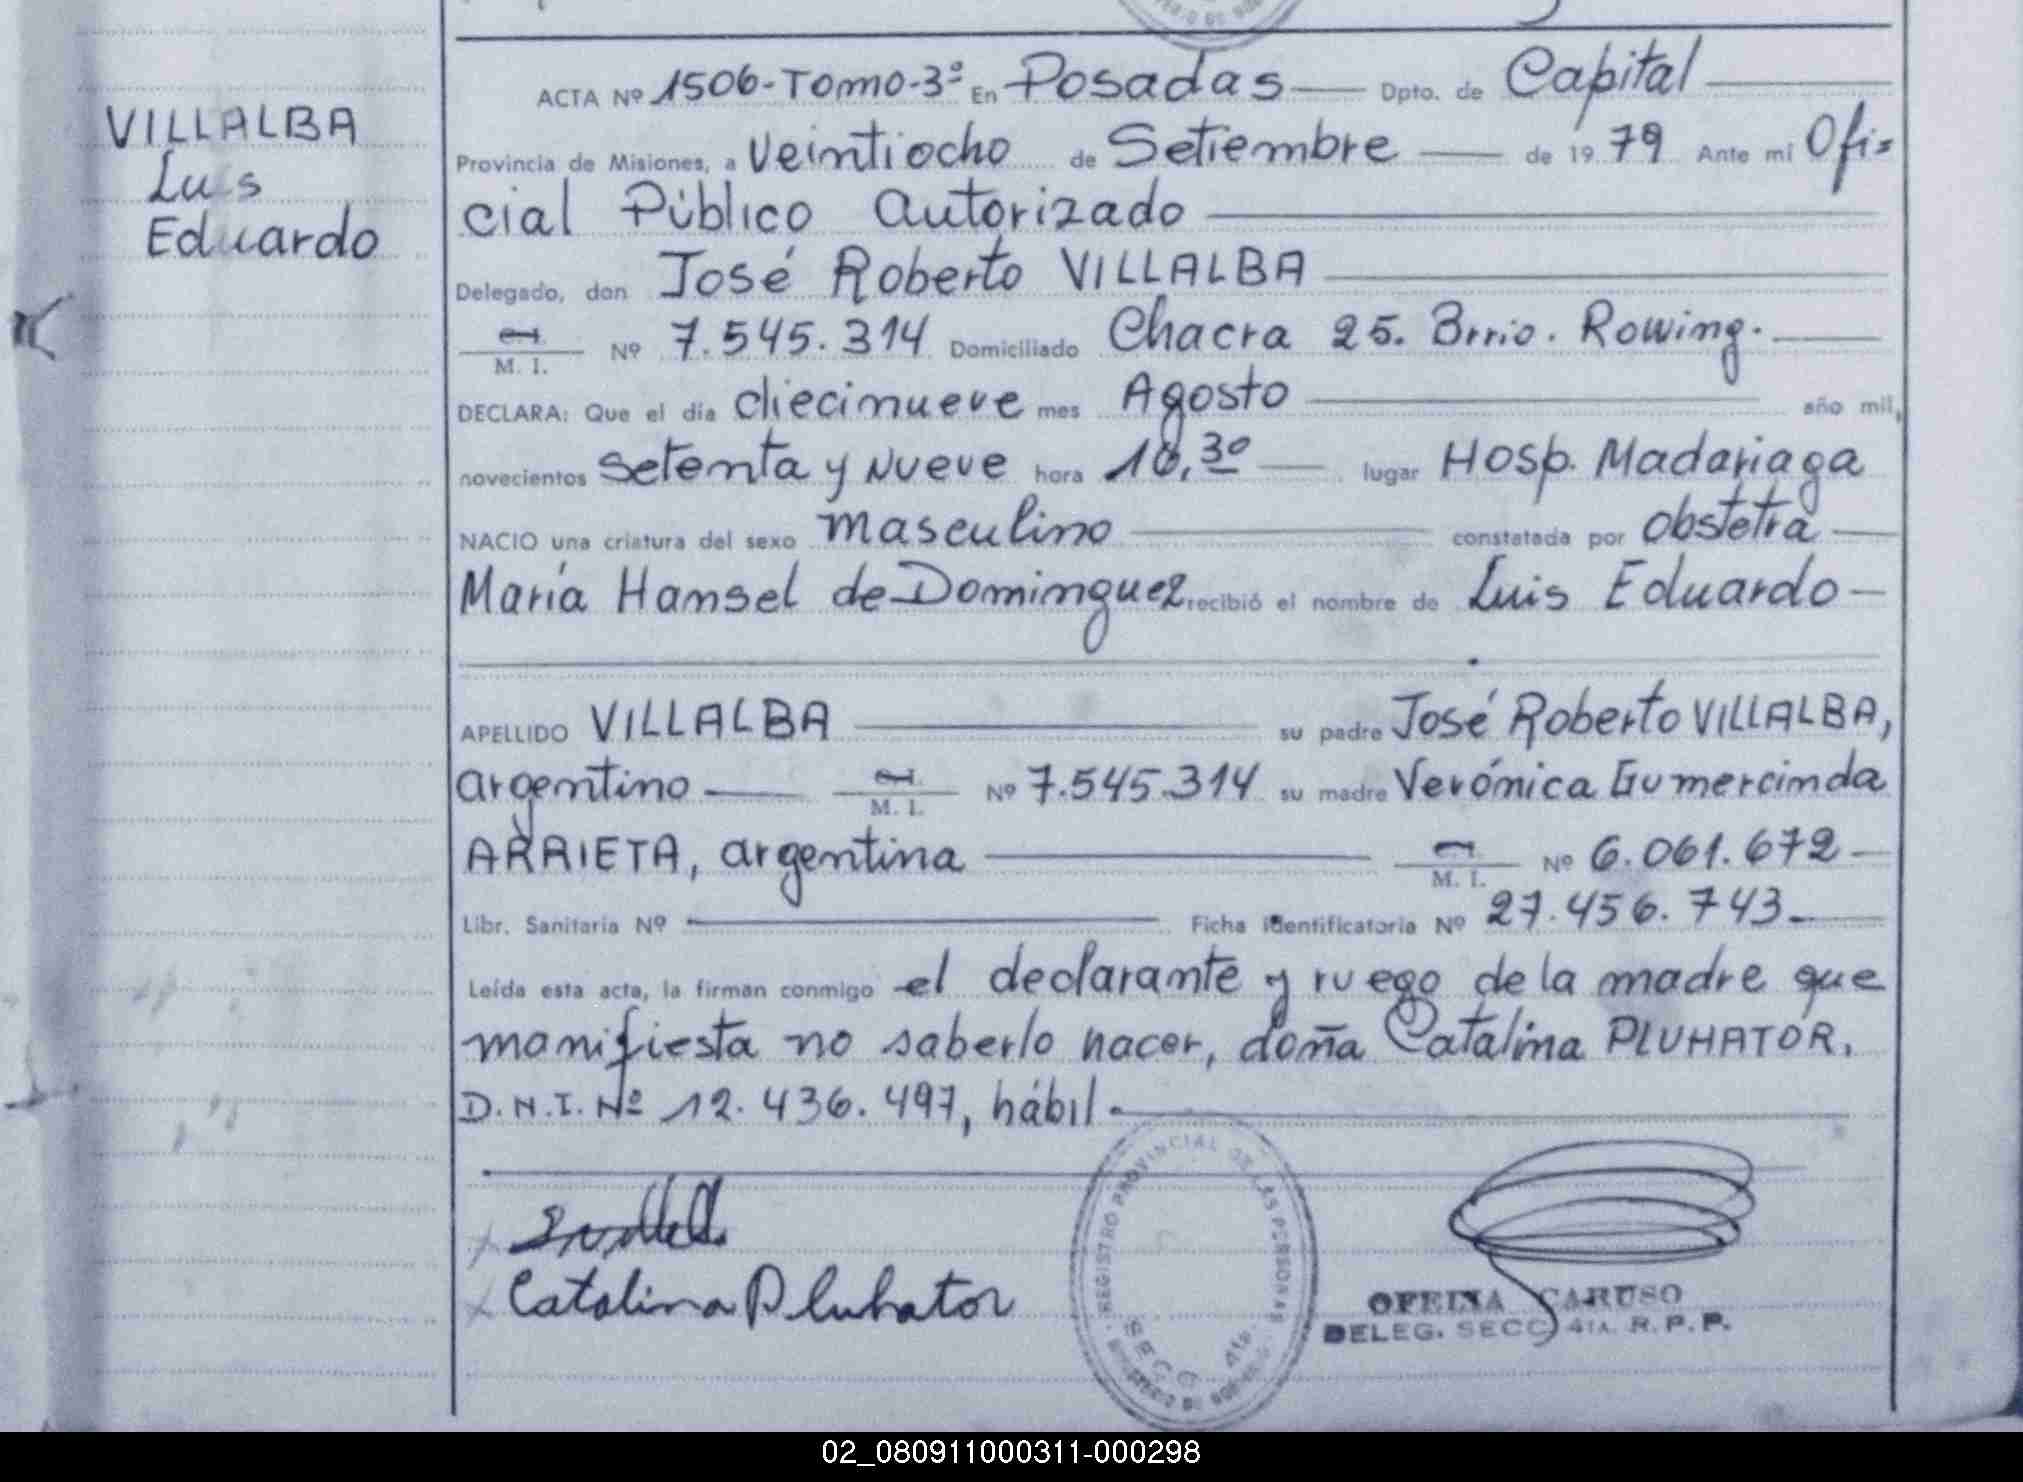 VILLALBA
Luis
Eduardo
ACTA Nº 1506-Tomo-3º En Posadas Dpto. de Capital
Provincia de Misiones, a Veintiocho de Setiembre de 1979 Ante mi Ofi=
cial Público Autorizado
Delegado, don José Roberto VILLALBA
M. I. Nº 7.545.314 Domiciliado Chacra 25. Brrio. Rowing.
DECLARA: Que el día diecinueve mes Agosto año mil,
novecientos setenta y Nueve hora 10,30 lugar Hosp. Madariaga
NACIO una criatura del sexo masculino constatada por obstetra
María Hansel de Dominguez recibió el nombre de Luis Eduardo
APELLIDO VILLALBA su padre José Roberto VILLALBA,
argentino M. I. Nº 7.545.314 su madre Verónica Gumercinda
ARRIETA, argentina M. I. Nº 6.061.672
Libr. Sanitaria Nº Ficha identificatoria Nº 27.456.743
Leída esta acta, la firman conmigo el declarante y ruego de la madre que
manifiesta no saberlo hacer, doña Catalina PLUHATOR.
D.N.I. Nº 12.436.497, hábil.
Catalina Pluhator
REGISTRO PROVINCIAL DE LAS PERSONAS
SECC 41a.
OFELIA CARUSO
DELEG. SECC 41A. R.P.P.
02_080911000311-000298